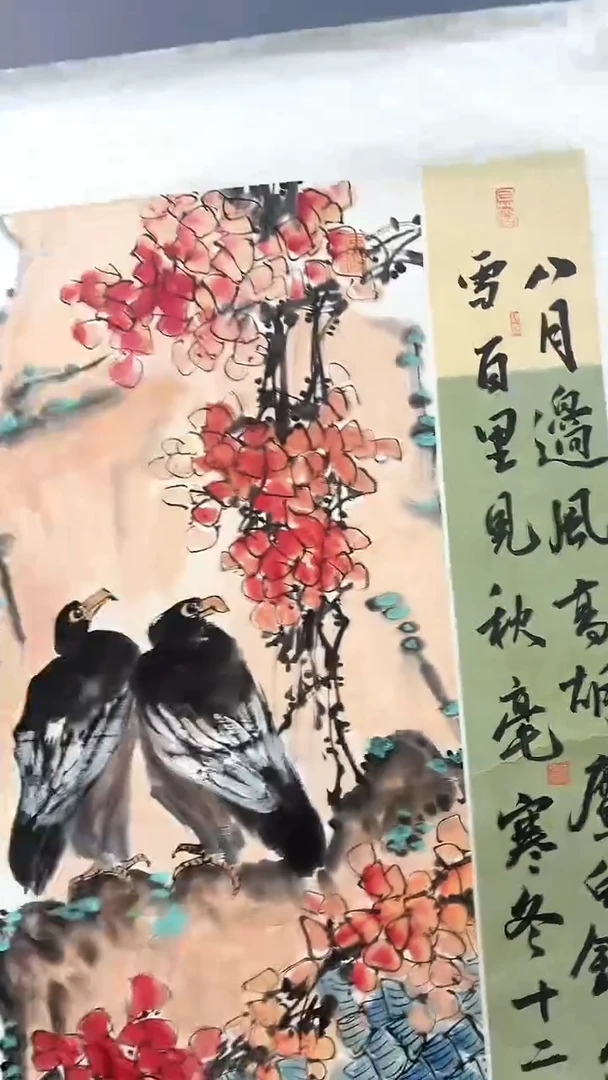 八月邊風高胡鷹白錦
雪百里見秋毫寒冬十二